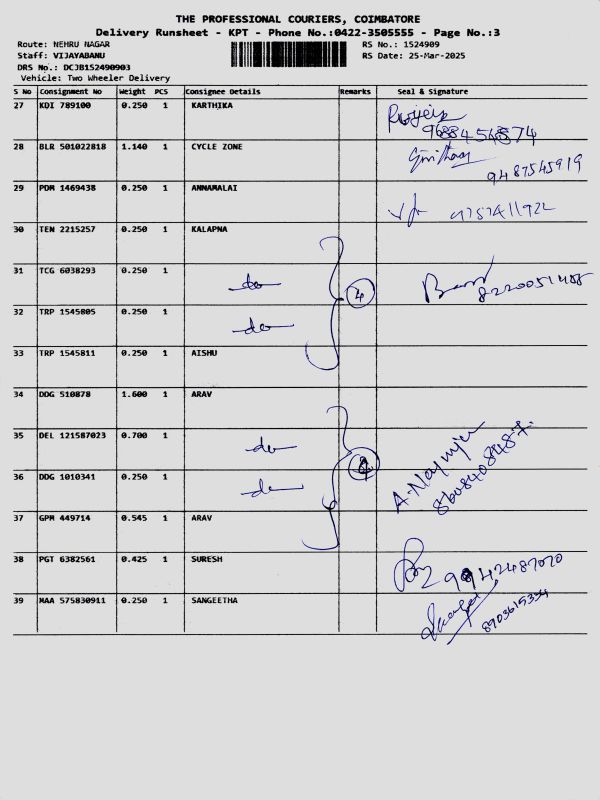 THE PROFESSIONAL COURIERS, COIMBATORE
Delivery Runsheet - KPT - Phone No.:0422-3505555 - Page No.:3
Route: NEHRU NAGAR RS No.: 1524909
Staff: VIJAYABANU RS Date: 25-Mar-2025
DRS No.: DCJB152490903
Vehicle: Two Wheeler Delivery
S No Consignment No Weight PCS Consignee Details Remarks Seal & Signature
27 KDI 789100 0.250 1 KARTHIKA
28 BLR 501022818 1.140 1 CYCLE ZONE
9487545919
29 PDM 1469438 0.250 1 ANNAMALAI
30 TEN 2215257 0.250 1 KALAPNA
31 TCG 6038293 0.250 1 do 4
32 TRP 1545805 0.250 1 do
33 TRP 1545811 0.250 1 AISHU
34 DDG 510878 1.600 1 ARAV
35 DEL 121587023 0.700 1 do
36 DDG 1010341 0.250 1 do
37 GPM 449714 0.545 1 ARAV
38 PGT 6382561 0.425 1 SURESH
39 MAA 575830911 0.250 1 SANGEETHA